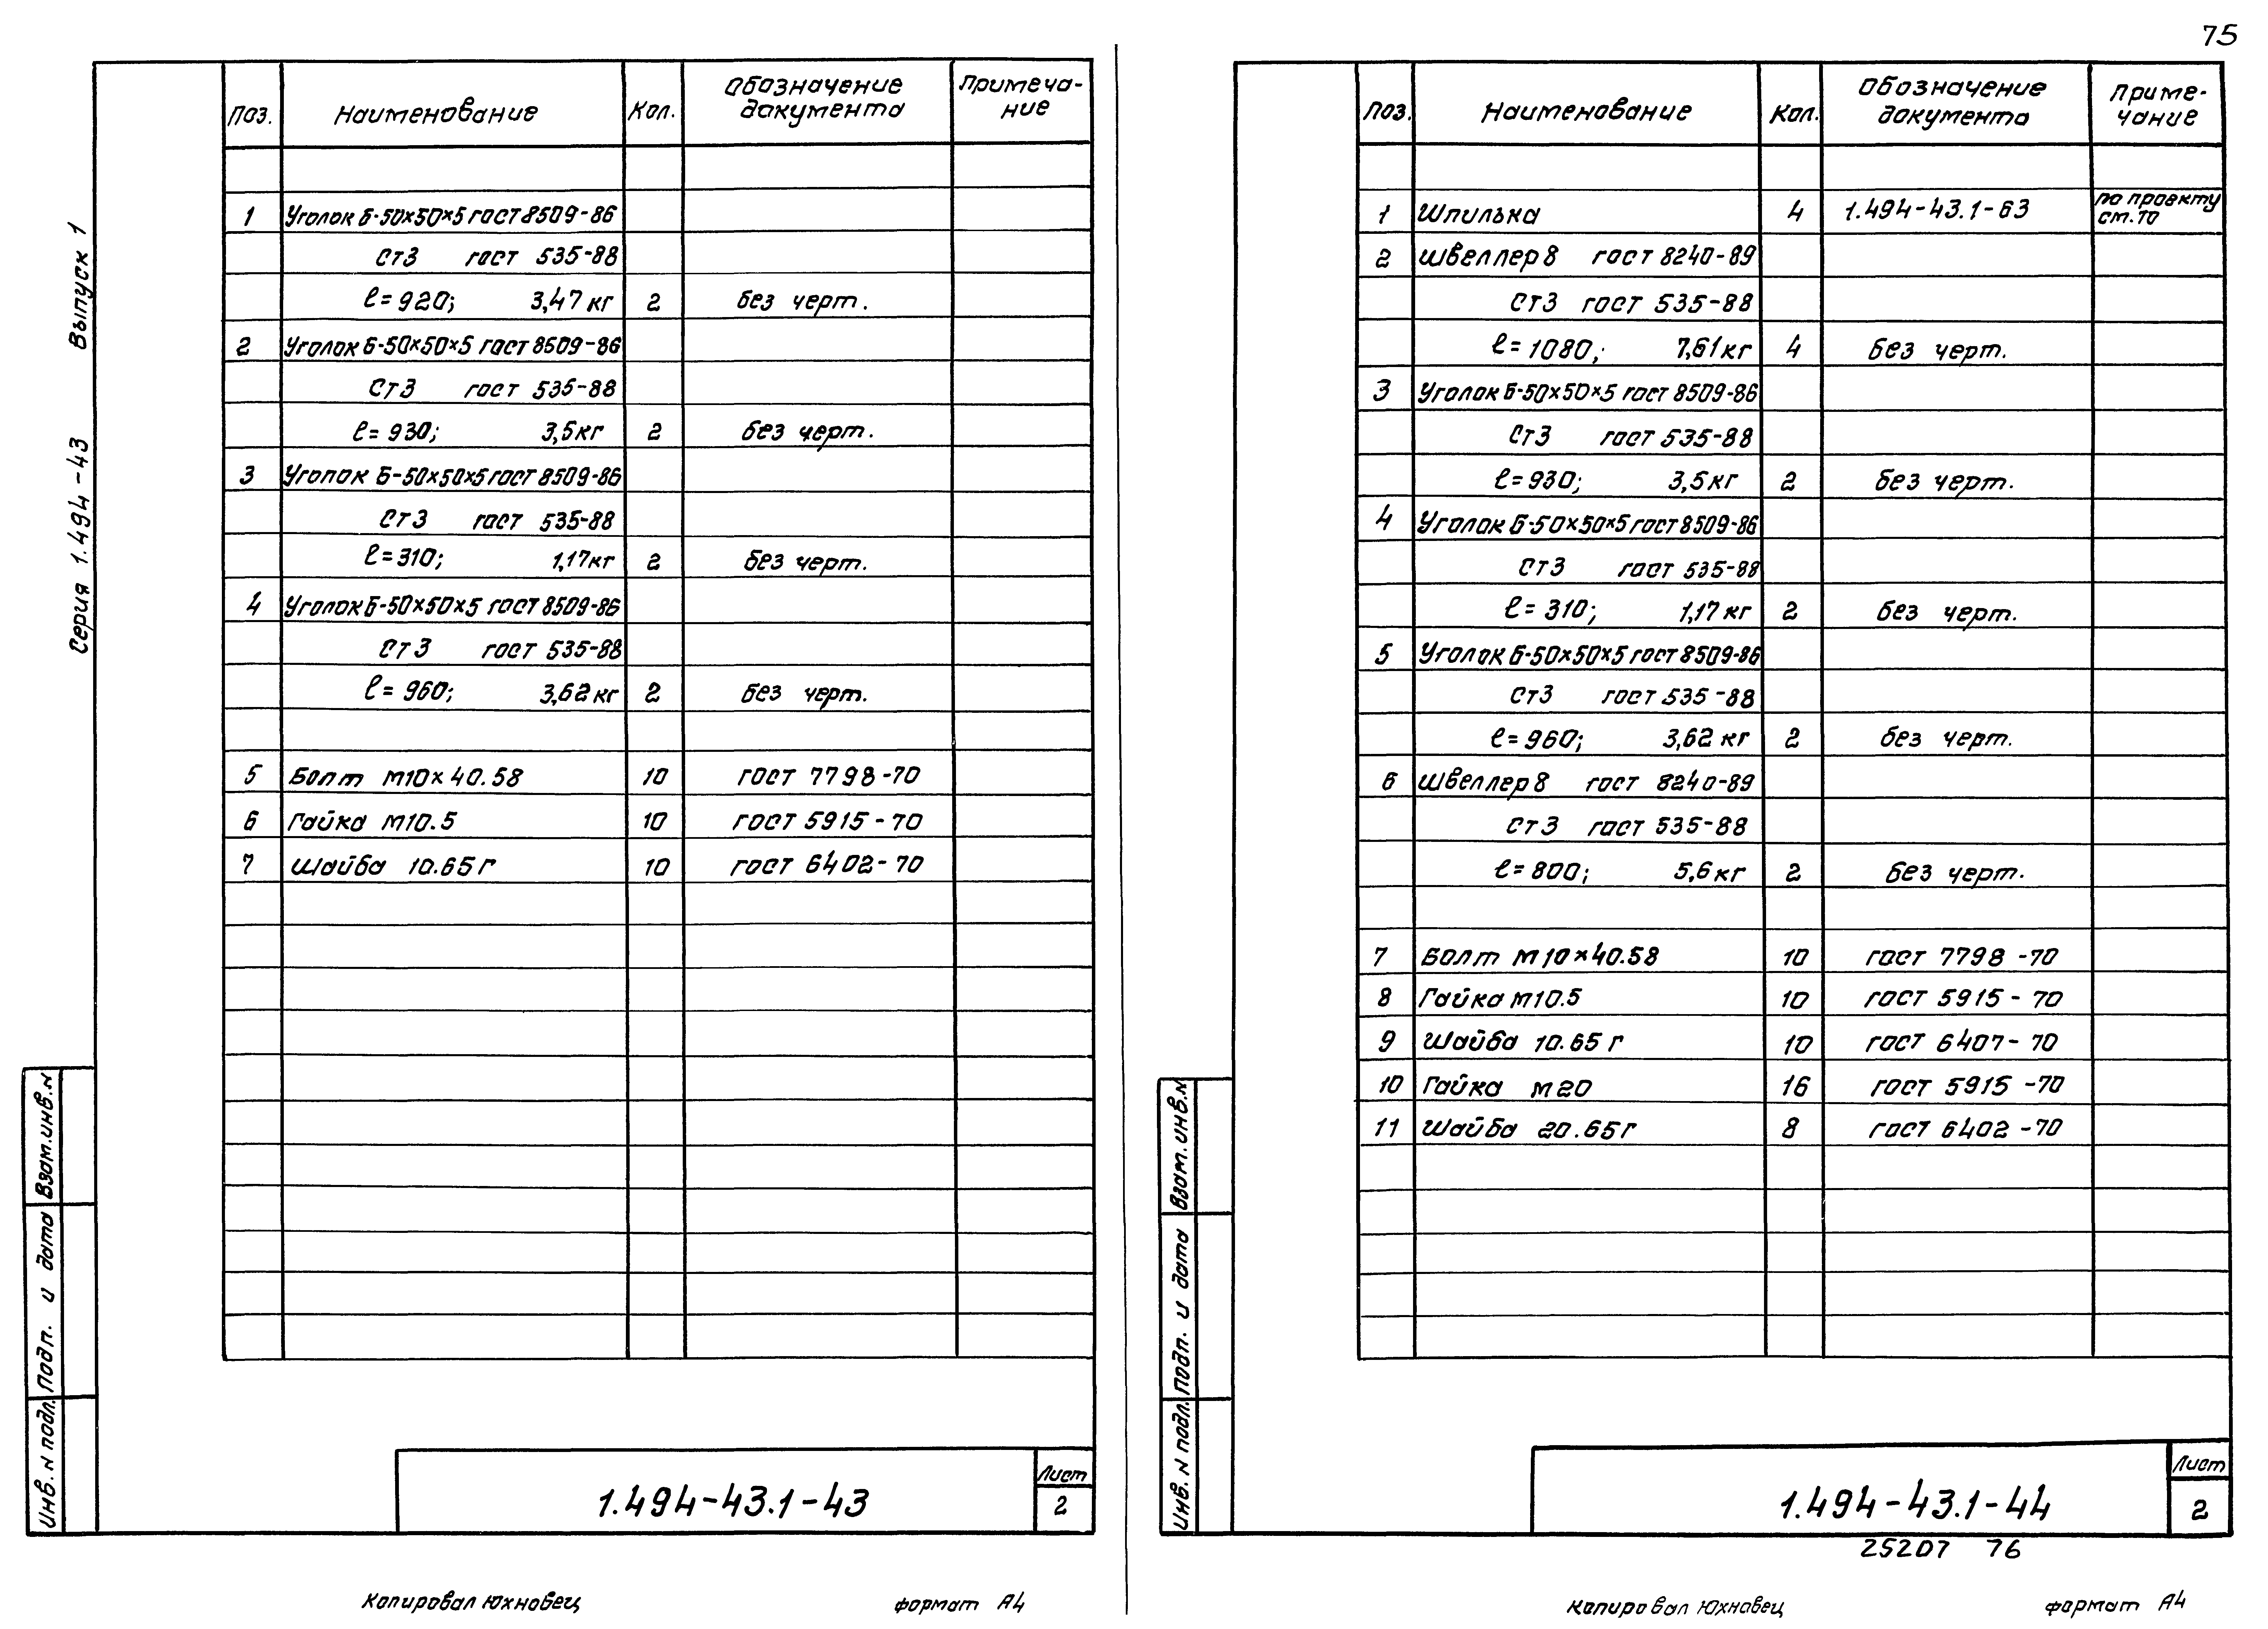 75
Серия 1.494-43 Выпуск 1
Поз. Наименование Кол. Обозначение документа Примеча-ние
1 Уголок Б-50×50×5 ГОСТ 8509-86
Ст3 ГОСТ 535-88
ℓ=920; 3,47 кг 2 без черт.
2 Уголок Б-50×50×5 ГОСТ 8509-86
Ст3 ГОСТ 535-88
ℓ=930; 3,5 кг 2 без черт.
3 Уголок Б-50×50×5 ГОСТ 8509-86
Ст3 ГОСТ 535-88
ℓ=310; 1,17 кг 2 без черт.
4 Уголок Б-50×50×5 ГОСТ 8509-86
Ст3 ГОСТ 535-88
ℓ=960; 3,62 кг 2 без черт.
5 Болт М10×40.58 10 ГОСТ 7798-70
6 Гайка М10.5 10 ГОСТ 5915-70
7 Шайба 10.65Г 10 ГОСТ 6402-70
Инв. N подл. Подп. и дата Взам.инв.N
1.494-43.1-43
Лист
2
Копировал Юхновец формат А4
Поз. Наименование Кол. Обозначение документа Приме-чание
1 Шпилька 4 1.494-43.1-63 по проекту
ст. ТО
2 Швеллер 8 ГОСТ 8240-89
Ст3 ГОСТ 535-88
ℓ=1080; 7,61 кг 4 без черт.
3 Уголок Б-50×50×5 ГОСТ 8509-86
Ст3 ГОСТ 535-88
ℓ=930; 3,5 кг 2 без черт.
4 Уголок Б-50×50×5 ГОСТ 8509-86
Ст3 ГОСТ 535-88
ℓ=310; 1,17 кг 2 без черт.
5 Уголок Б-50×50×5 ГОСТ 8509-86
Ст3 ГОСТ 535-88
ℓ=960; 3,62 кг 2 без черт.
6 Швеллер 8 ГОСТ 8240-89
Ст3 ГОСТ 535-88
ℓ=800; 5,6 кг 2 без черт.
7 Болт М10×40.58 10 ГОСТ 7798-70
8 Гайка М10.5 10 ГОСТ 5915-70
9 Шайба 10.65Г 10 ГОСТ 6407-70
10 Гайка М20 16 ГОСТ 5915-70
11 Шайба 20.65Г 8 ГОСТ 6402-70
Инв. N подл. Подп. и дата Взам.инв.N
1.494-43.1-44
Лист
2
25207 76
Копировал Юхновец формат А4